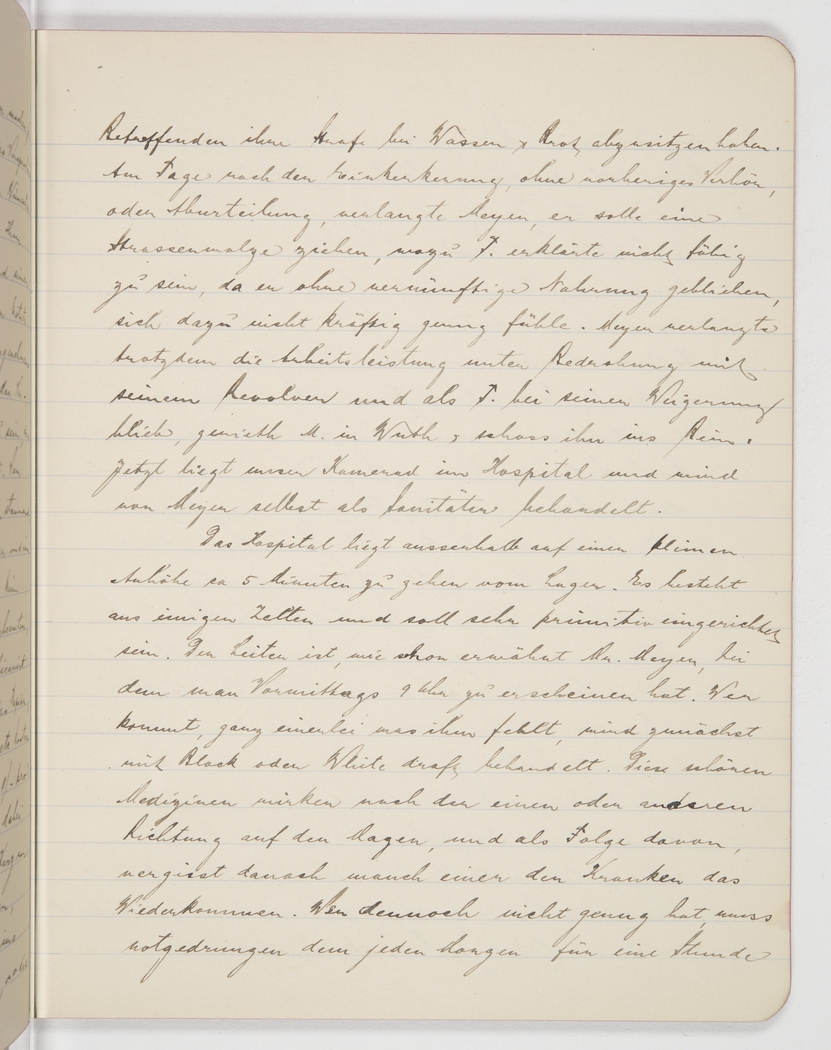 Betreffenden ihre Strafe bei Wasser & Brot abzusitzen haben.
Am Tage nach der Einkerkerung, ohne vorheriges Verhör,
oder Aburteilung, verlangte Meyer, er solle eine
Strassenwalze ziehen, wozu F. erklärte nicht fähig
zu sein, da er ohne vernünftige Nahrung geblieben,
sich dazu nicht kräftig genug fühle. Meyer verlangte
trotzdem die Arbeitsleistung unter Bedrohung mit
seinem Revolver und als F. bei seiner Weigerung
blieb, gerieth M. in Wuth & schoss ihn ins Bein.
Jetzt liegt unser Kamerad im Hospital und wird
von Meyer selbst als Sanitäter behandelt.
Das Hospital liegt ausserhalb auf einer kleinen
Anhöhe ca 5 Minuten zu gehen vom Lager. Es besteht
aus einigen Zelten und soll sehr primitiv eingerichtet
sein. Der Leiter ist, wie schon erwähnt Mr. Meyer, bei
dem man Vormittags 9 Uhr zu erscheinen hat. Wer
kommt, ganz einerlei was ihm fehlt, wird zunächst
mit Black oder White draft behandelt. Diese schönen
Medizinen wirken nach der einen oder anderen
Richtung auf den Magen, und als Folge davon,
vergisst danach manch einer der Kranken das
Wiederkommen. Wer dennoch nicht genug hat, muss
notgedrungen dem jeden Morgen für eine Stunde